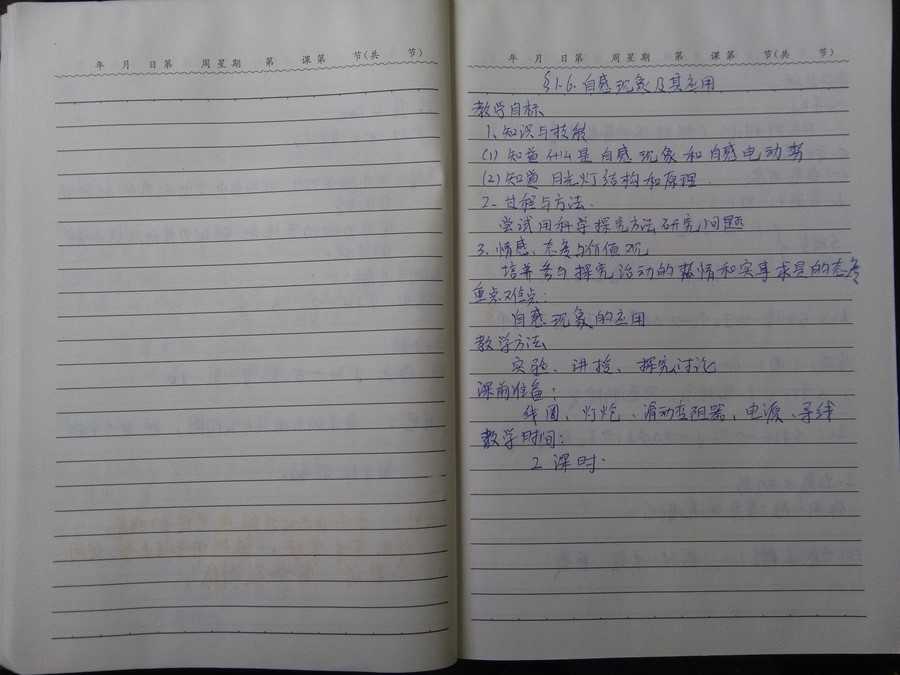 年 月 日第 周星期 第 课第 节(共 节)
年 月 日第 周星期 第 课第 节(共 节)
§1.6.自感现象及其应用
教学目标
1.知识与技能
(1)知道什么是自感现象和自感电动势
(2)知道日光灯结构和原理.
2.过程与方法.
尝试用科学探究方法研究问题
3.情感、态度与价值观
培养参与探究活动的热情和实事求是的态度
重点难点:
自感现象的应用
教学方法
实验、讲授、探究讨论
课前准备:
线圈、灯炮、滑动变阻器、电源、导线
教学时间:
2课时.